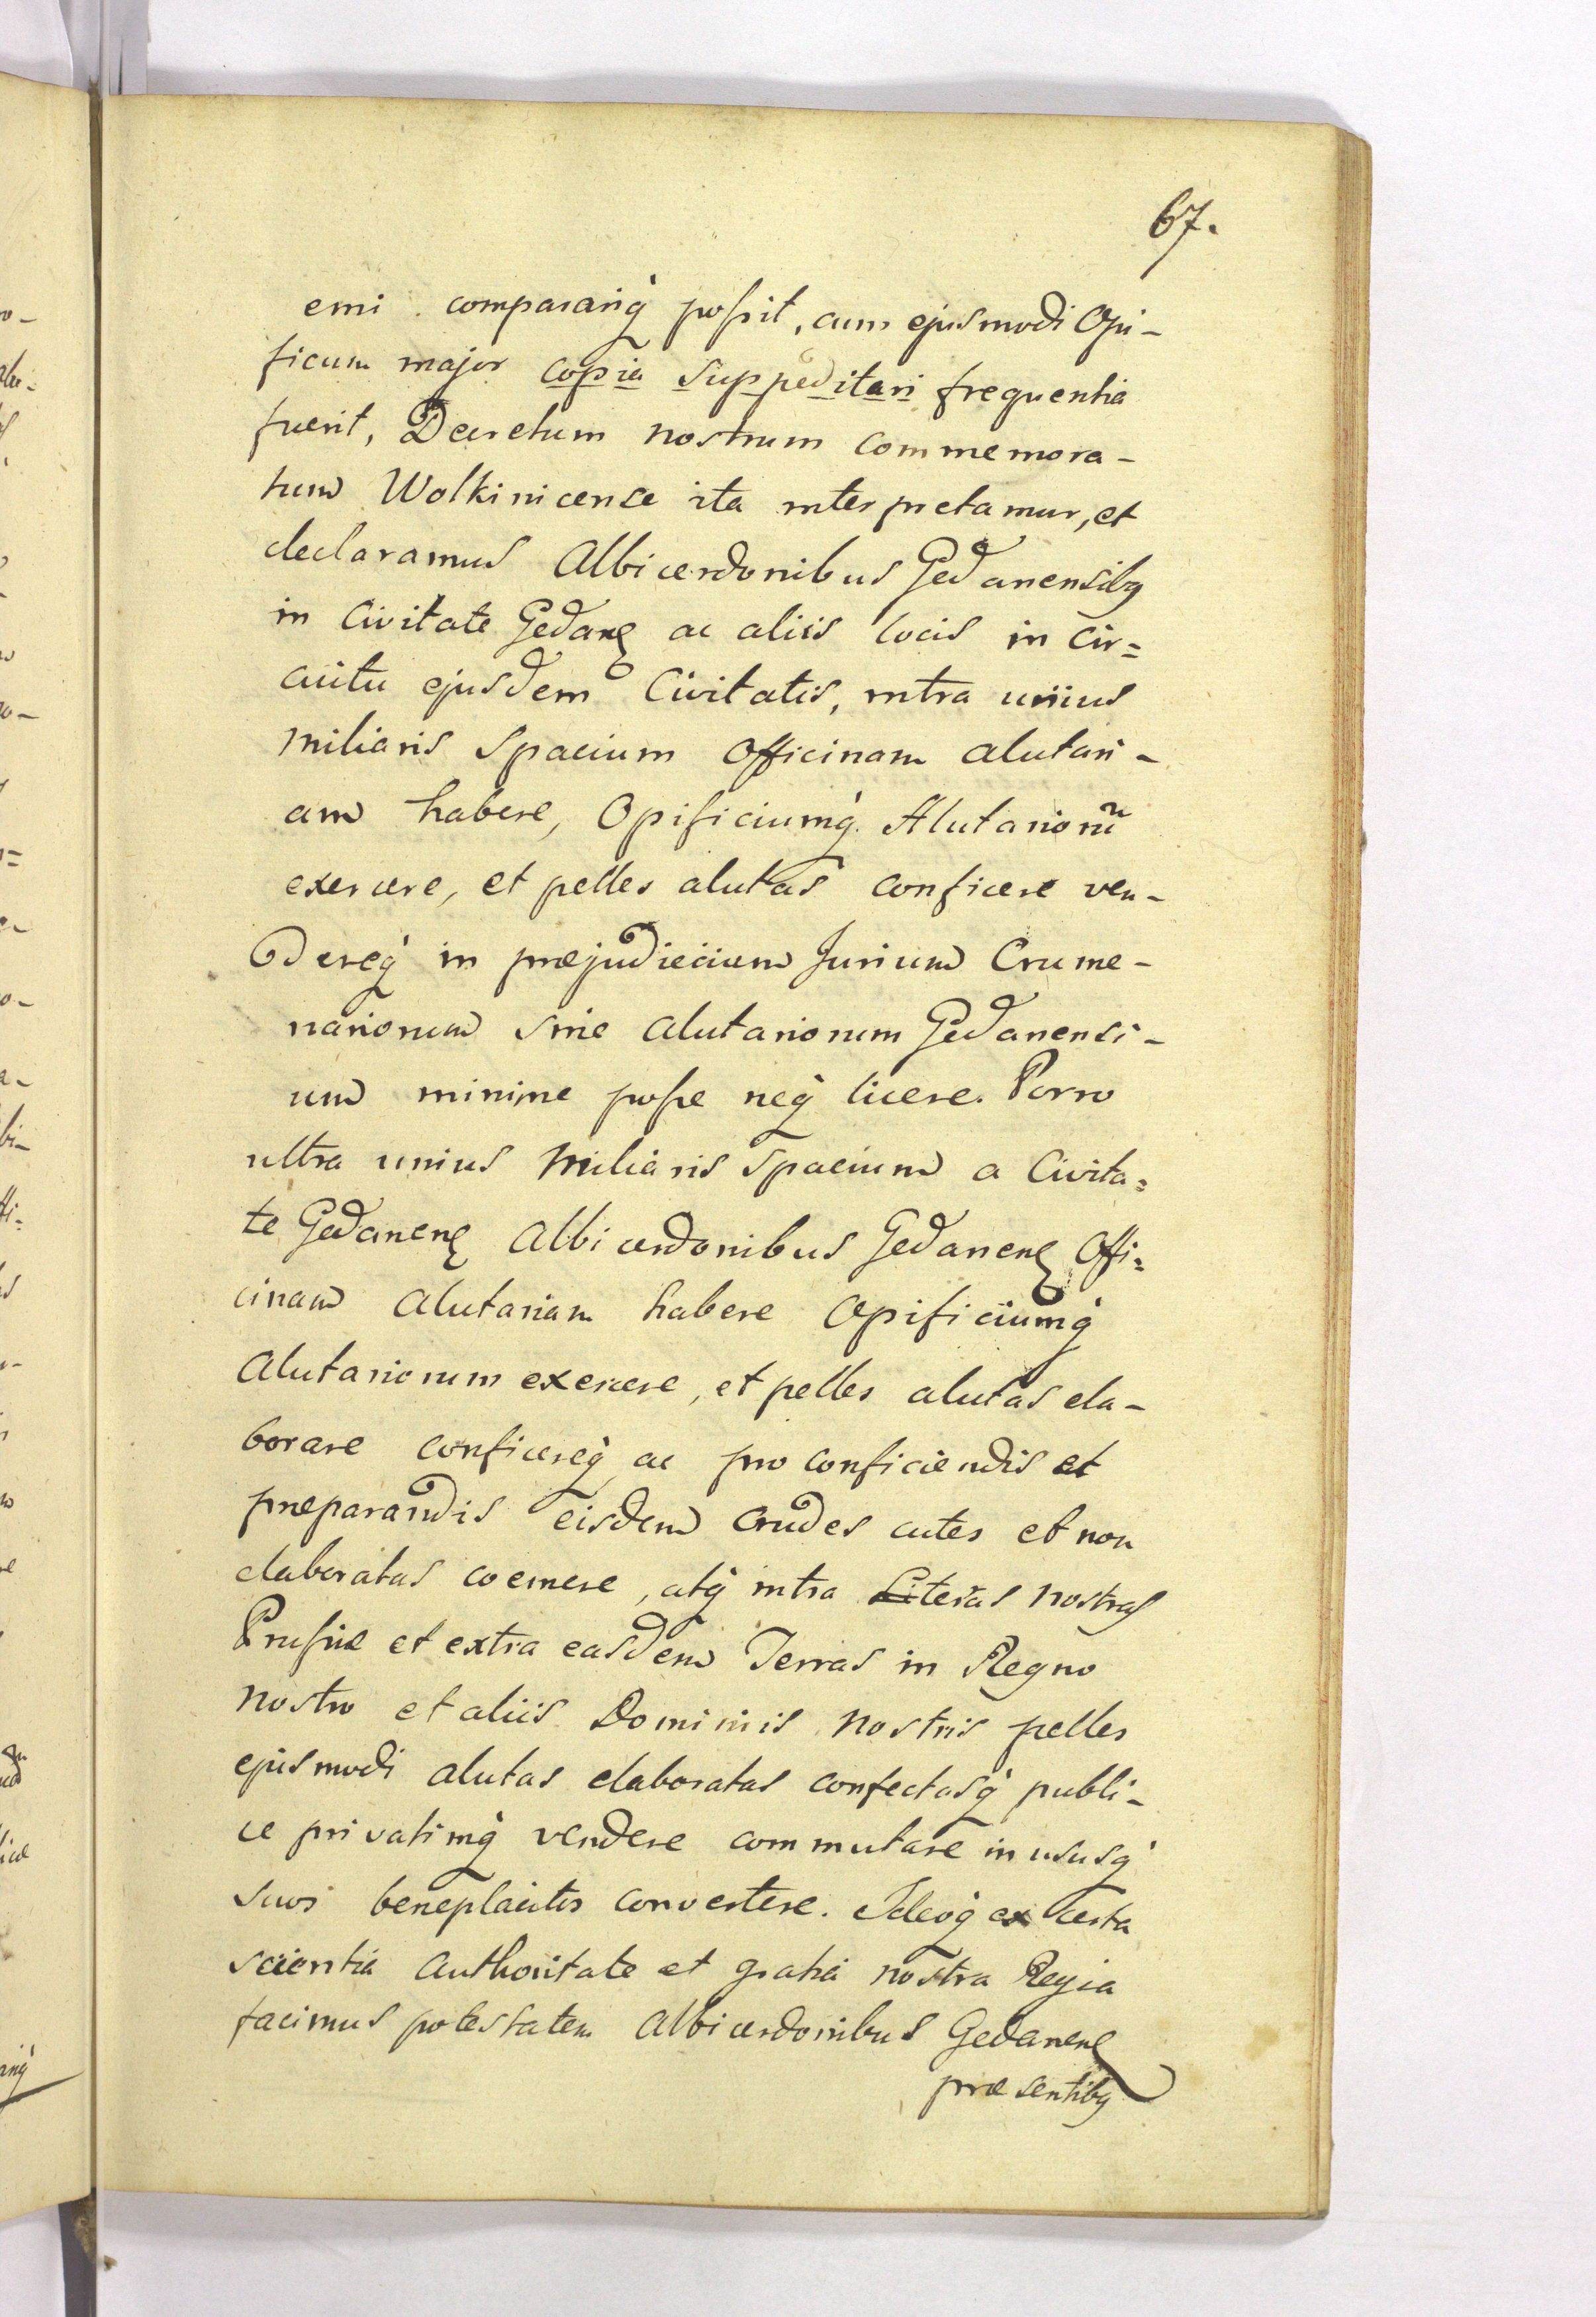 67.
emi comparariq́ poſsit, cum ejusmodi Opi-
ficum major copia suppeditari frequentia
fuerit, Decretum nostrum commemora-
tum Wolkinicense ita interpretamur, et
declaramus Albicerdonibus Gedanensibꝫ
in Civitate Gedanẽ ac aliis locis in cir=
cuitu ejusdem Civitatis, intra unius
miliaris Spacium Officinam alutari-
am habere, Opificiumq́ Alutariorũ
exercere, et pelles alutas conficere ven-
dereq́ in præjudiecium Jurium Crume-
nariorum sine alutariorum Gedanensi-
um minime poſse neq́ licere. Porro
ultra unius Miliaris Spacium a Civita=
te Gedanenẽ Albicerdonibus Gedanenẽ Offi=
cinam alutariam habere Opificiumq́
Alutariorum exercere, et pelles alutas ela-
borare conficereq́ ac pro conficiendis et
præparandis eisdem Crudes cutes et non
elaboratas coemere, atq́ intra Literas nostras
Pruſsiæ et extra easdem Terras in Regno
nostro et aliis Dominiis nostris pelles
ejusmodi alutas elaboratas confectasq́ publi-
ce privatimq́ vendere commutare in ususq́
suos beneplacitos convertere. Ideoq́ ex certa
scientia authoritate et gratia nostra Regia
facimus potestatem Albicerdonibus Gedanenẽ
præsentibꝫ